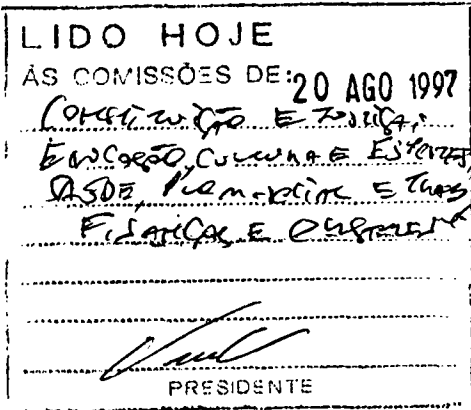 LIDO HOJE
ÀS COMISSÕES DE: 20 AGO 1997
Constituição e Justiça;
Educação, Cultura e Esportes,
Saúde, e
Finanças e Orçamento
PRESIDENTE